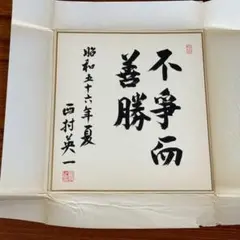 不爭而
善勝
昭和五十六年夏
西村英一